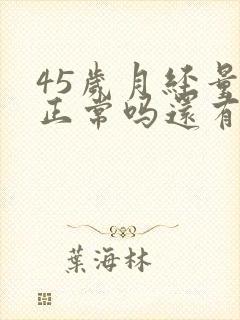 45歲月经量
正常吗還有
葉海林